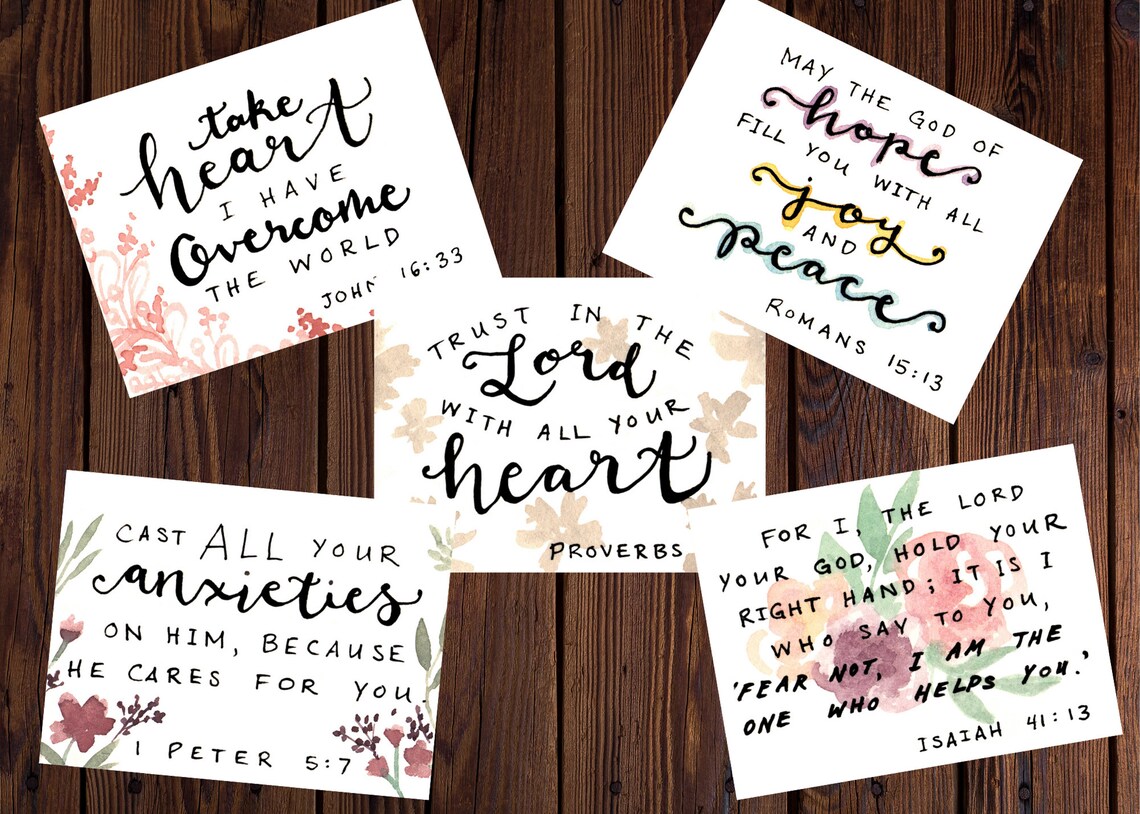 take
heart
I HAVE
Overcome
THE WORLD
JOHN 16:33
MAY THE GOD OF
hope
FILL YOU WITH ALL
joy
AND
peace
ROMANS 15:13
TRUST IN THE
Lord
WITH ALL YOUR
heart
PROVERBS
CAST ALL YOUR
anxieties
ON HIM, BECAUSE
HE CARES FOR YOU
1 PETER 5:7
FOR I, THE LORD
YOUR GOD, HOLD YOUR
RIGHT HAND; IT IS I
WHO SAY TO YOU,
'FEAR NOT, I AM THE
ONE WHO HELPS YOU.'
ISAIAH 41:13